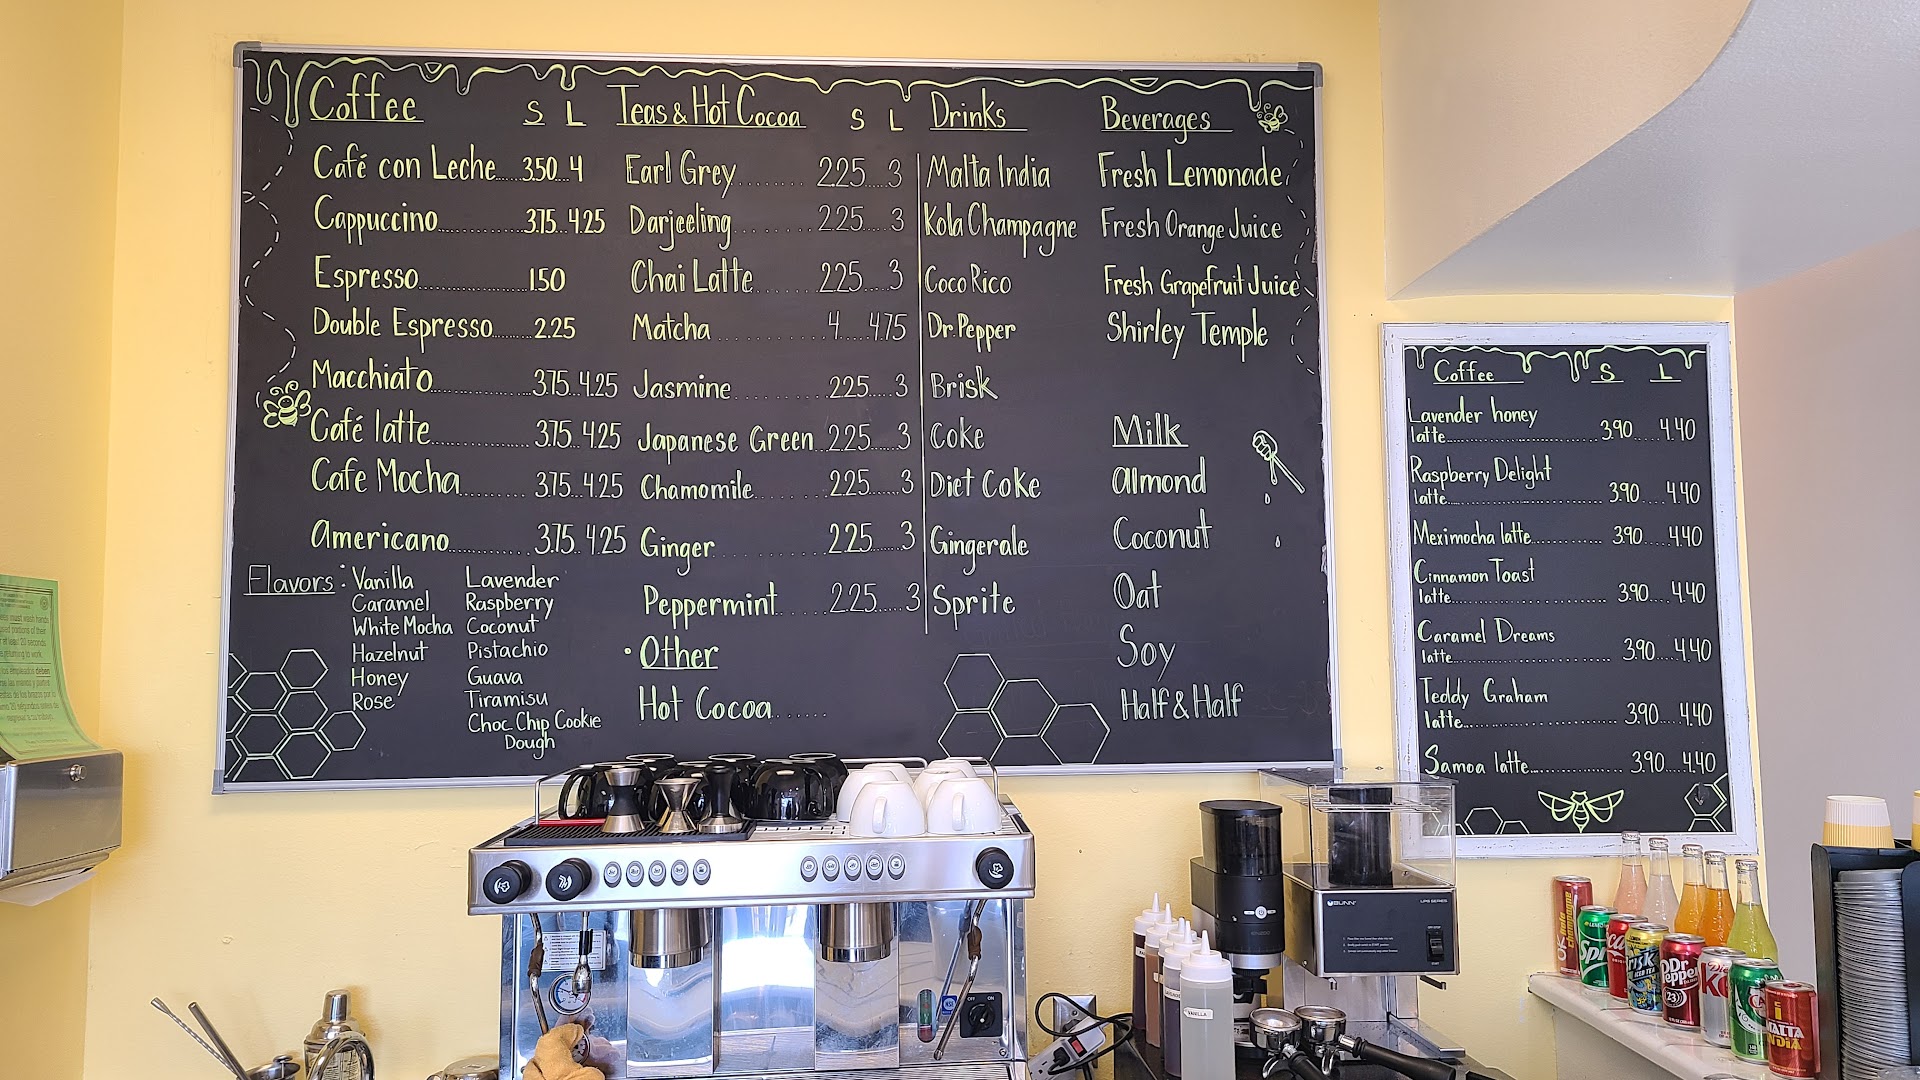 Coffee S L
Café con Leche......3.50...4
Cappuccino................3.75...4.25
Espresso......................1.50
Double Espresso.........2.25
Macchiato....................3.75..4.25
Café latte....................3.75..4.25
Cafe Mocha.............3.75..4.25
Americano................3.75..4.25
Flavors:
Vanilla
Caramel
White Mocha
Hazelnut
Honey
Rose
Lavender
Raspberry
Coconut
Pistachio
Guava
Tiramisu
Choc Chip Cookie
Dough
Teas & Hot Cocoa S L
Earl Grey........ 2.25....3
Darjeeling.......... 2.25....3
Chai Latte.......... 2.25....3
Matcha............. 4....4.75
Jasmine............ 2.25....3
Japanese Green..2.25.....3
Chamomile......... 2.25......3
Ginger............ 2.25......3
Peppermint..... 2.25.....3
• Other
Hot Cocoa......
Drinks
Malta India
Kola Champagne
Coco Rico
Dr. Pepper
Brisk
Coke
Diet Coke
Gingerale
Sprite
Beverages
Fresh Lemonade
Fresh Orange Juice
Fresh Grapefruit Juice
Shirley Temple
Milk
almond
Coconut
Oat
Soy
Half & Half
Coffee S L
Lavender honey
latte..........................3.90.....4.40
Raspberry Delight
latte..........................3.90.....4.40
Meximocha latte.............3.90.....4.40
Cinnamon Toast
latte..........................3.90....4.40
Caramel Dreams
latte..........................3.90....4.40
Teddy Graham
latte..........................3.90....4.40
Samoa latte...................3.90....4.40
BUNN
VANILLA
OFF ON